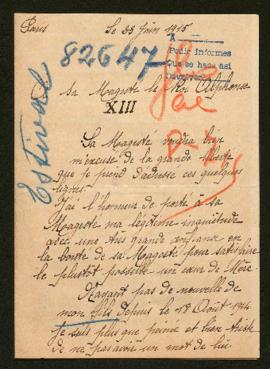 Paris Le 25 Juin 1915
82647
A
Pedir informes
Que se hace así
Estival
sa Magesté le Roi Alphonse
XIII
Sa Magesté voudra bien
m'excuse de la grande liberté
que je prend d'adresse ces quelques
lignes.
J'ai l'honneur de porté à sa
Magesté ma légitime inquiétude
avec une très grande confiance en
la bonté de sa Magesté pour satisfaire
le plustot possible un cœur de Mère.
N'ayant pas de nouvelle de
mon fils depuis le 18 Août 1914
je suis plus que peinée et bien triste
de ne pas avoir un mot de lui